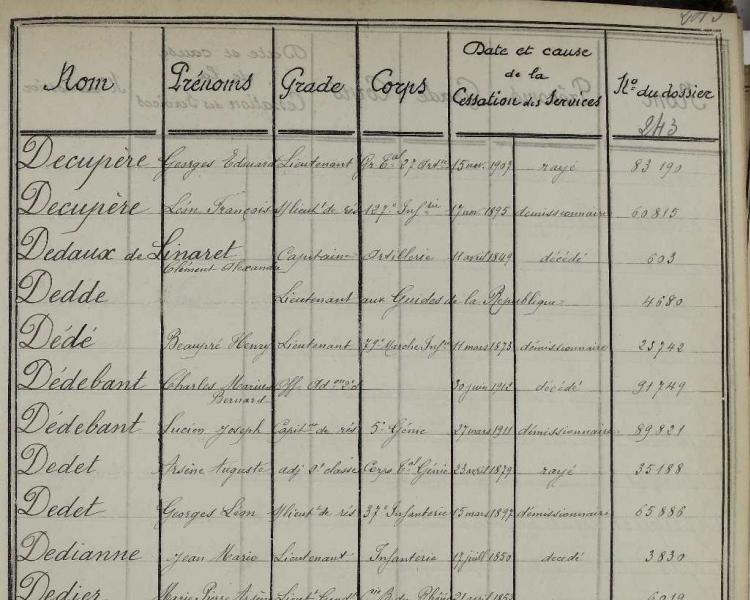 Nom Prénoms Grade Corps Date et cause de la Cessation des Services No. du dossier
243
Decupère Georges Edouard Lieutenant 27 Artie 15 nov. 1907 rayé 83 190
Decupère Léon François S/lieutt de rés 127e Infrie 1895 démissionnaire 60815
Dedaux de Linaret Capitaine Artillerie 11 avril 1849 décédé 603
Clément Alexandre
Dedde Lieutenant aux Guides de la République 4680
Dédé Beaupré Henry Lieutenant 79e Marche Infie 11 mars 1873 démissionnaire 23742
Dédebant Charles Marius Off. Ad on 2e cl 30 juin 1912 décédé 91749
Bernard
Dédebant Lucien Joseph Capitne de rés 5e Génie 27 mars 1911 démissionnaire 89821
Dedet Arsène Auguste adj 2e classe Corps Génie 23 avril 1879 rayé 35188
Dedet Georges Léon S/lieutt de rés 37e Infanterie 15 mars 1897 démissionnaire 65886
Dedianne Jean Marie Lieutenant Infanterie 17 juill 1850 décédé 3830
Dedier Marie Pierre Arsène Lieutt du Rhône 21 avril 6019